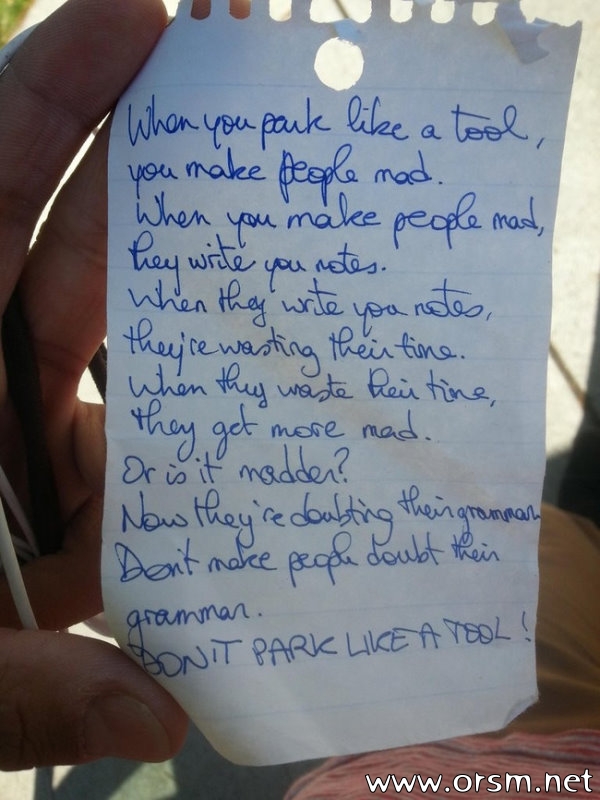 When you park like a tool,
you make people mad.
When you make people mad,
they write you notes.
When they write you notes,
they're wasting their time.
When they waste their time,
they get more mad.
Or is it madder?
Now they're doubting their grammar.
Don't make people doubt their
grammar.
DON'T PARK LIKE A TOOL!
www.orsm.net